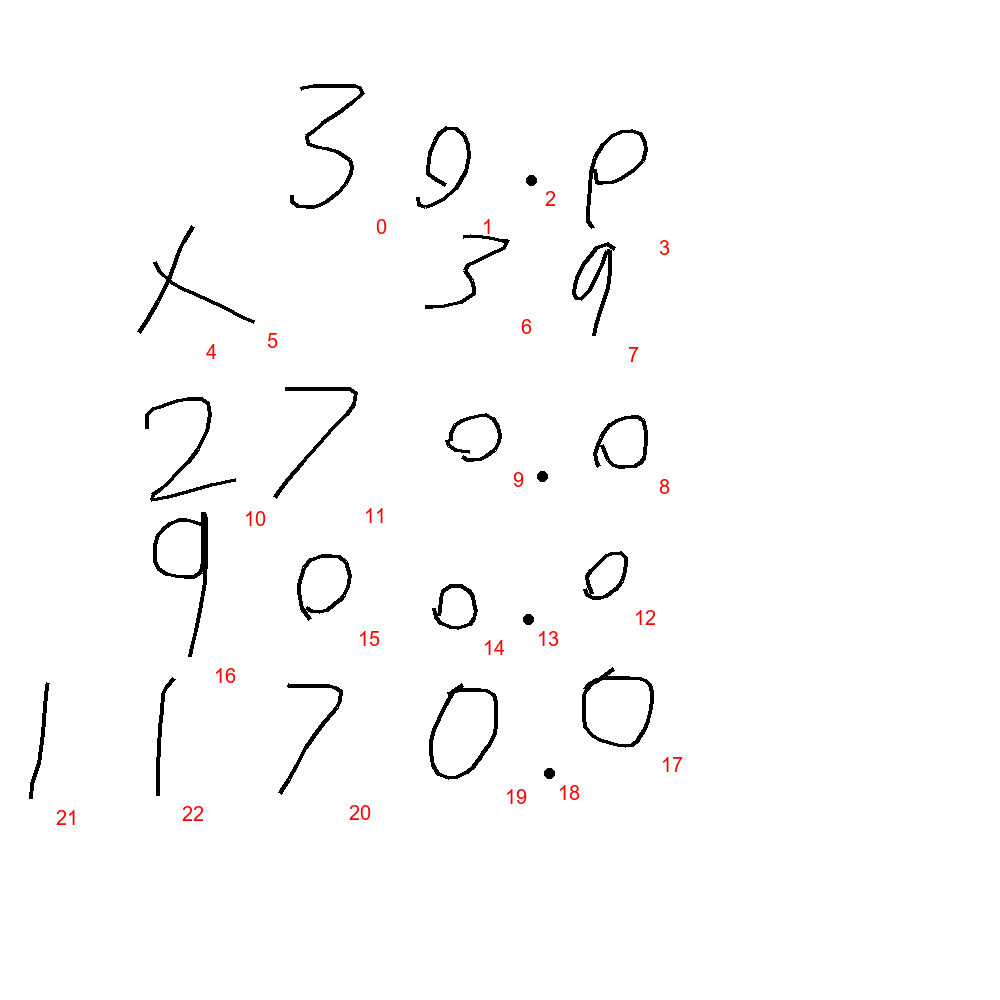 30.0
0 1 2 3
× 39
4 5 6 7
270.0
10 11 9 8
900.0
16 15 14 13 12
1170.0
21 22 20 19 18 17